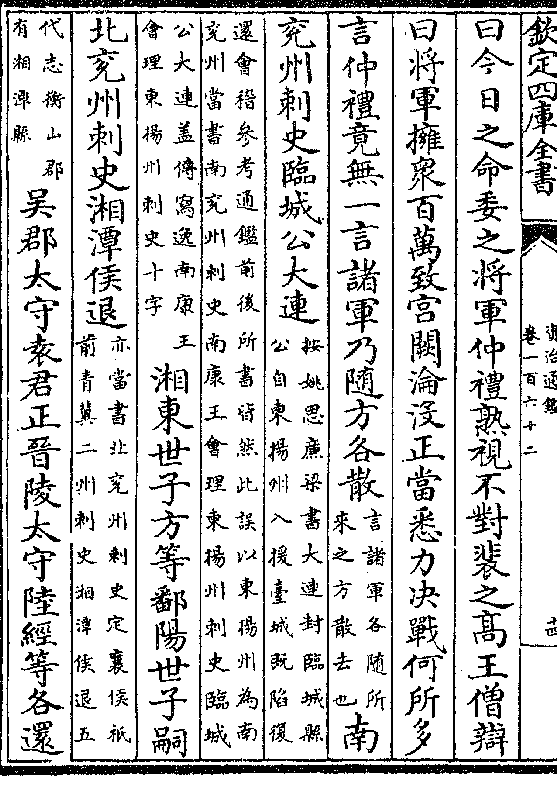 欽定四庫全書
資治通鑑
卷一百六十二
曰今日之命委之將軍仲禮熟視不對裴之髙王僧辯
曰將軍擁衆百萬致宫闕淪没正當悉力决戰何所多
言仲禮竟無一言諸軍乃随方各散
言諸軍各随所
來之方散去也
南
兖州刺史臨城公大連
按姚思廉梁書大連封臨城縣
公自東揚州入援臺城既陷復
還會稽參考通鑑前後所書皆然此誤以東揚州為南
兖州當書南兖州刺史南康王會理東揚州刺史臨城
公大連盖傳寫逸南康王
會理東揚州刺史十字
湘東世子方等鄱陽世子嗣
北兖州刺史湘潭侯退
亦當書北兖州刺史定襄侯祇
前青冀二州刺史湘潭侯退五
代志衡山郡
有湘潭縣
吴郡太守袁君正晉陵太守陸經等各還